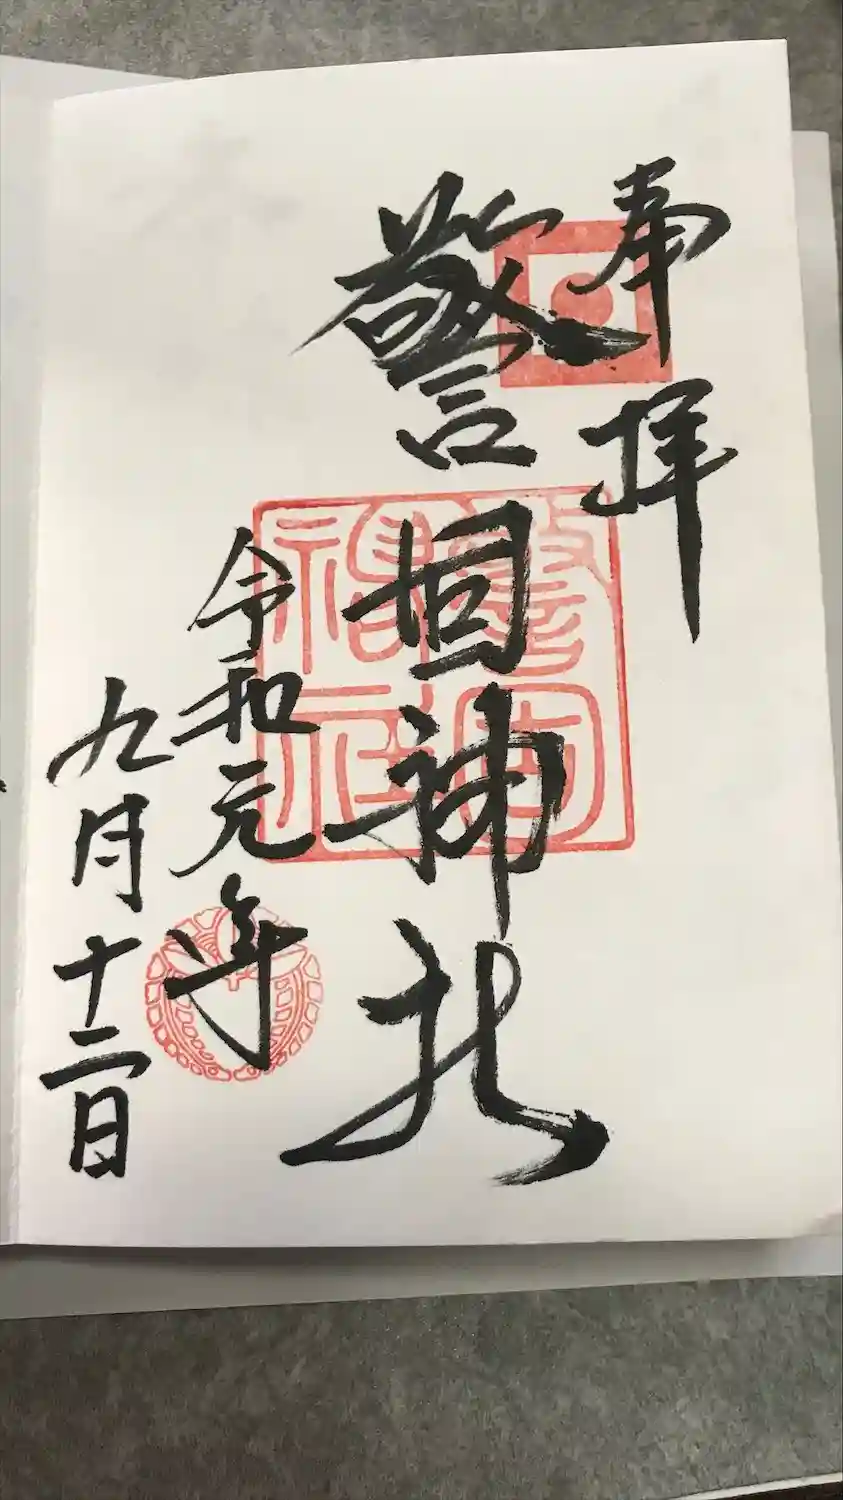 奉拝
警固神社
令和元年
九月十二日
警固神社